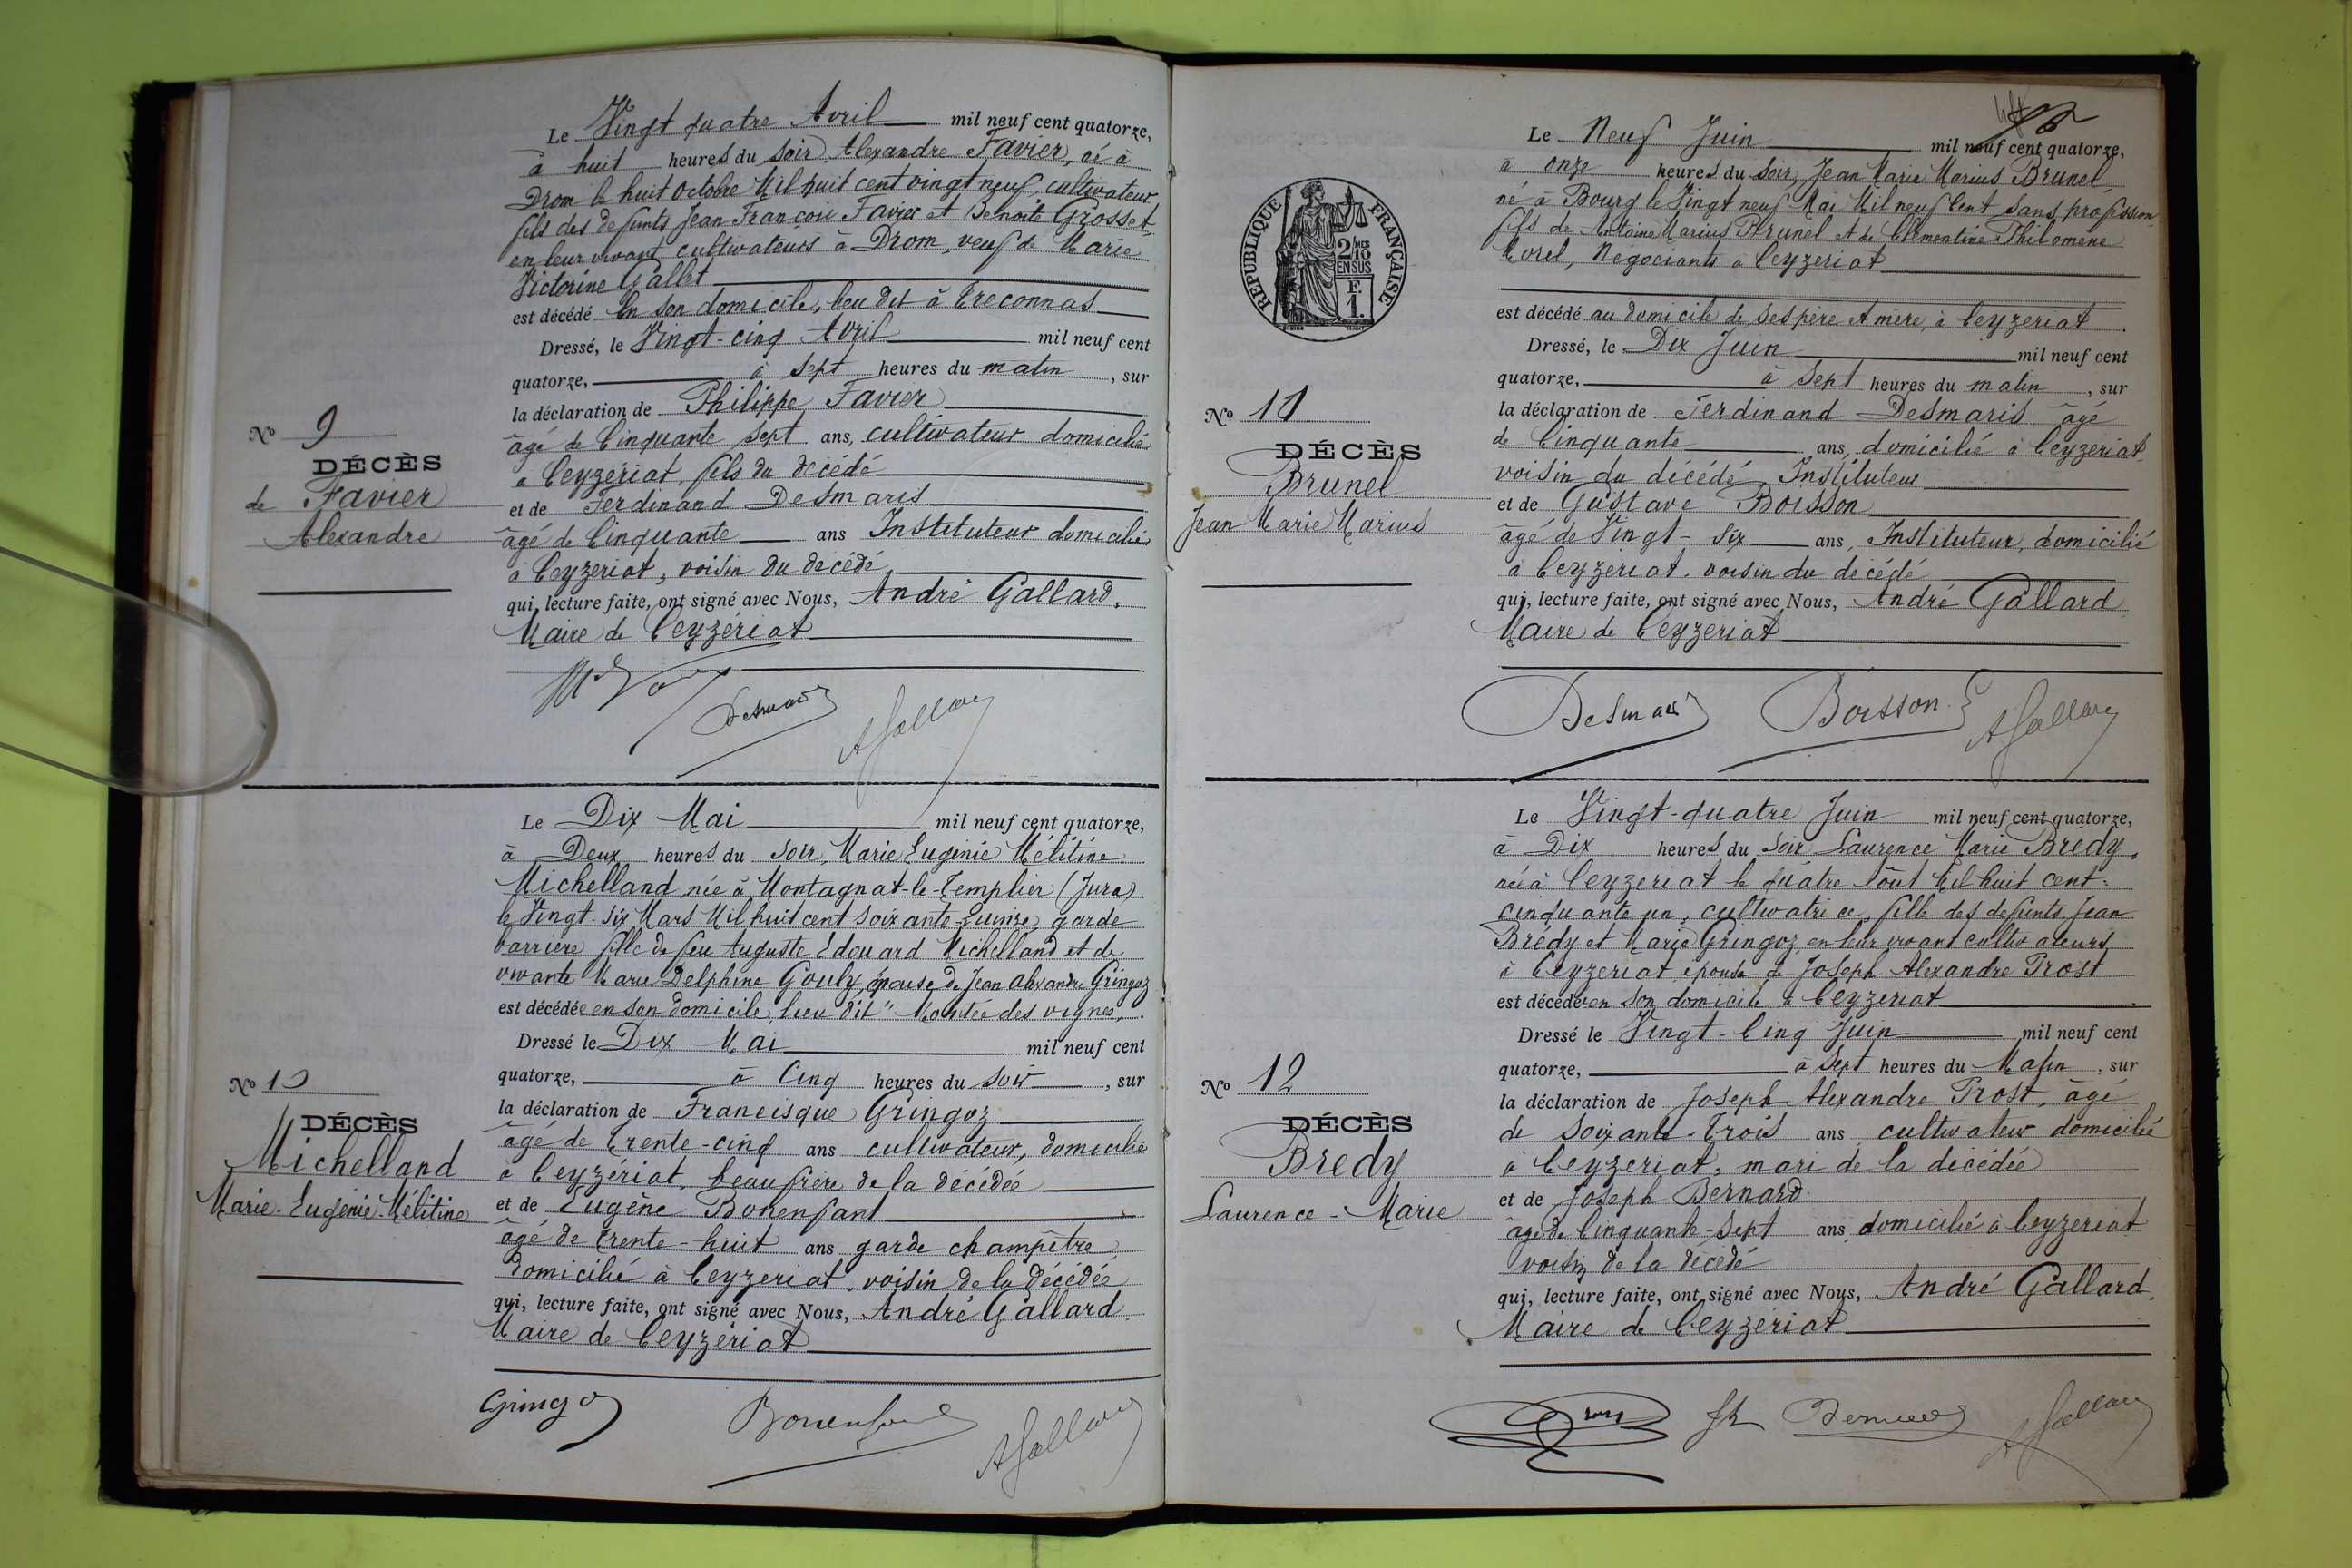 Le Vingt quatre Avril mil neuf cent quatorze,
à huit heures du soir, Alexandre Favier, né à
Drom le huit octobre Mil huit cent vingt neuf, cultivateur
fils des defunts Jean François Favier et Benoite Grosset
en leur vivant cultivateurs à Drom, veuf de Marie
Victorine Gallet
est décédé En son domicile, lieu dit à Treconnas
Dressé, le Vingt-cinq Avril mil neuf cent
quatorze, à sept heures du matin, sur
la déclaration de Philippe Favier
âgé de Cinquante sept ans, cultivateur domicilié
à Ceyzeriat, fils du décédé
et de Ferdinand Desmaris
âgé de Cinquante ans Instituteur domicilié
à Ceyzeriat, voisin du décédé
qui, lecture faite, ont signé avec Nous, André Gallard,
Maire de Ceyzériat
No 9
DÉCÈS
de Favier
Alexandre
Desmaris
AGallard
Le Dix Mai mil neuf cent quatorze,
à Deux heures du soir, Marie Eugénie Mélitine
Michelland née à Montagnat-le-Templier (Jura)
le Vingt-six Mars Mil huit cent soixante-quinze, garde
barrière fille de feu Auguste Edouard Michelland et de
vivante Marie Delphine Gouly, épouse de Jean Alexandre Gringoz
est décédée en son domicile, lieu dit "Montée des vignes"
Dressé le Dix Mai mil neuf cent
quatorze, à Cinq heures du soir, sur
la déclaration de Francisque Gringoz
âgé de trente-cinq ans cultivateur, domicilié
à Ceyzériat, beau frère de la décédée
et de Eugène Bonenfant
âgé de trente-huit ans garde champêtre
domicilié à Ceyzeriat, voisin de la décédée
qui, lecture faite, ont signé avec Nous, André Gallard
Maire de Ceyzériat
No 10
DÉCÈS
Michelland
Marie-Eugénie-Mélitine
Gringoz
Bonenfant
AGallard
RÉPUBLIQUE FRANÇAISE
2/10mes
EN SUS
F.
1.
Le Neuf Juin mil neuf cent quatorze,
à onze heures du soir, Jean Marie Marius Brunel
né à Bourg le Vingt neuf Mai Mil neuf Cent sans profession
fils de Antoine Marius Brunel et de Clémentine Philomène
Morel, Négociants à Ceyzeriat
est décédé au domicile de ses père et mère, à Ceyzeriat.
Dressé, le Dix Juin mil neuf cent
quatorze, à sept heures du matin, sur
la déclaration de Ferdinand Desmaris âgé
de Cinquante ans, domicilié à Ceyzeriat
voisin du décédé, Instituteur
et de Gustave Boisson
âgé de Vingt-six ans, Instituteur, domicilié
à Ceyzeriat. voisin du décédé
qui, lecture faite, ont signé avec Nous, André Gallard
Maire de Ceyzeriat
No 11
DÉCÈS
Brunel
Jean Marie Marius
Desmaris
Boisson
AGallard
Le Vingt-quatre Juin mil neuf cent quatorze,
à Dix heures du soir Laurence Marie Brédy,
née à Ceyzeriat le quatre Août Mil huit cent
cinquante un, cultivatrice, fille des defunts Jean
Brédy et Marie Gringoz, en leur vivant cultivateurs
à Ceyzeriat épouse de Joseph Alexandre Prost
est décédée en son domicile à Ceyzeriat.
Dressé le Vingt-Cinq Juin mil neuf cent
quatorze, à sept heures du Matin, sur
la déclaration de Joseph Alexandre Prost, âgé
de soixante-trois ans cultivateur domicilié
à Ceyzeriat, mari de la décédée
et de Joseph Bernard
âgé de Cinquante-sept ans, domicilié à Ceyzeriat
voisin de la décédé
qui, lecture faite, ont signé avec Nous, André Gallard,
Maire de Ceyzériat
No 12
DÉCÈS
Bredy
Laurence-Marie
Prost
Bernard
AGallard